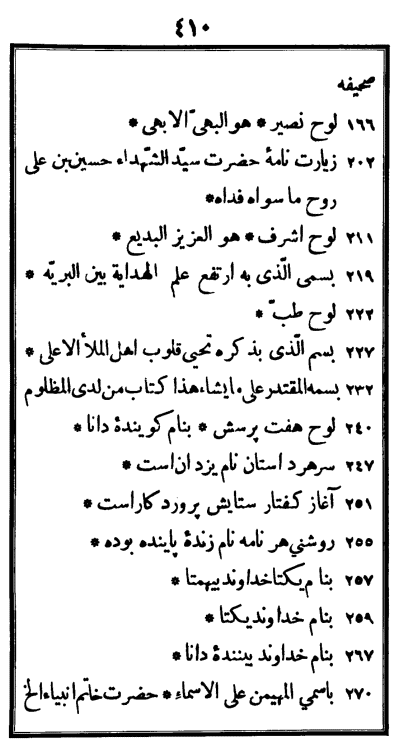 ٤١٠
صحیفه
١٦٦ لوح نصیر * هو البهیّ الابهی *
٢٠٢ زیارت نامهٔ حضرت سیّد الشّهداء حسین بن علی
روح ما سواه فداه*
٢١١ لوح اشرف * هو العزیز البدیع *
٢١٩ بسمی الّذی به ارتفع علم الهدایة بین البریّه *
٢٢٢ لوح طبّ *
٢٢٧ بسم الّذی بذکره تحیی قلوب اهل الملأ الاعلی *
٢٣٢ بسمه المقتدر علی ما یشاء هذا کتاب من لدی المظلوم
٢٤٠ لوح هفت پرسش * بنام کویندهٔ دانا *
٢٤٧ سر هر داستان نام یزدان است *
٢٥١ آغاز کفتار ستایش پرورد کار است *
٢٥٥ روشنی هر نامه نام زندهٔ پاینده بوده *
٢٥٧ بنام یکتا خداوند بیهمتا *
٢٥٩ بنام خداوند یکتا *
٢٦٧ بنام خداوند بینندهٔ دانا *
٢٧٠ باسمی المهیمن علی الاسماء * حضرت خاتم انبیاء الخ